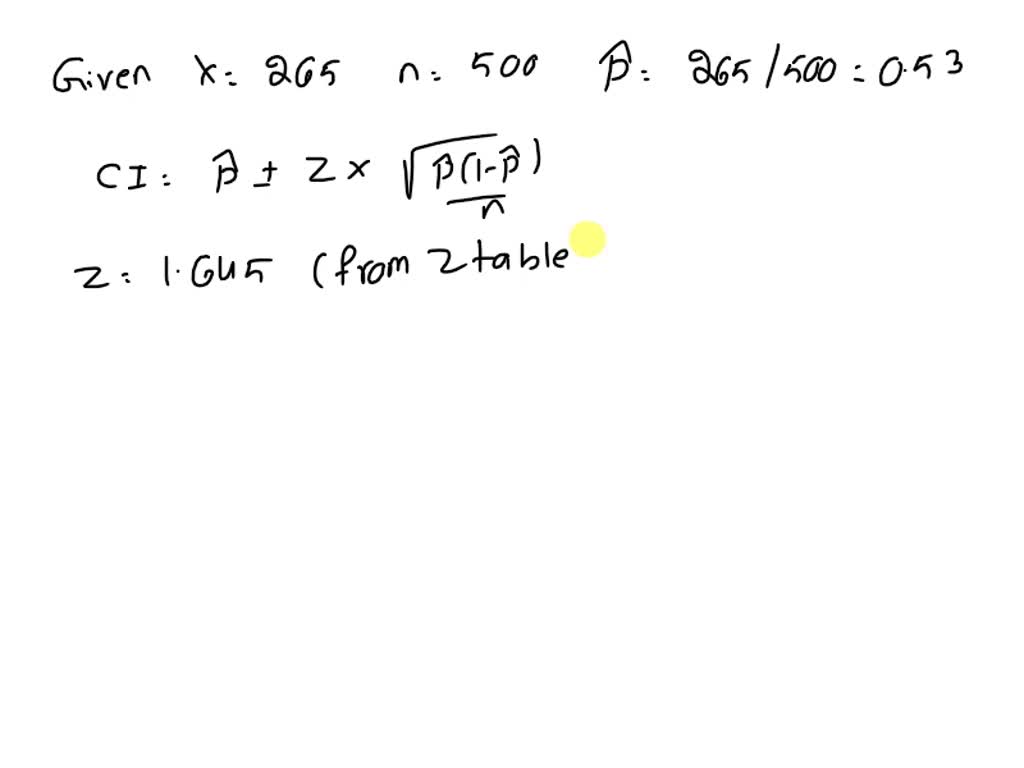 Given x = 265 n = 500 p̂ = 265/500 = 0.53
CI = p̂ ± Z × √p̂(1-p̂)/n
Z = 1.645 (from Z table